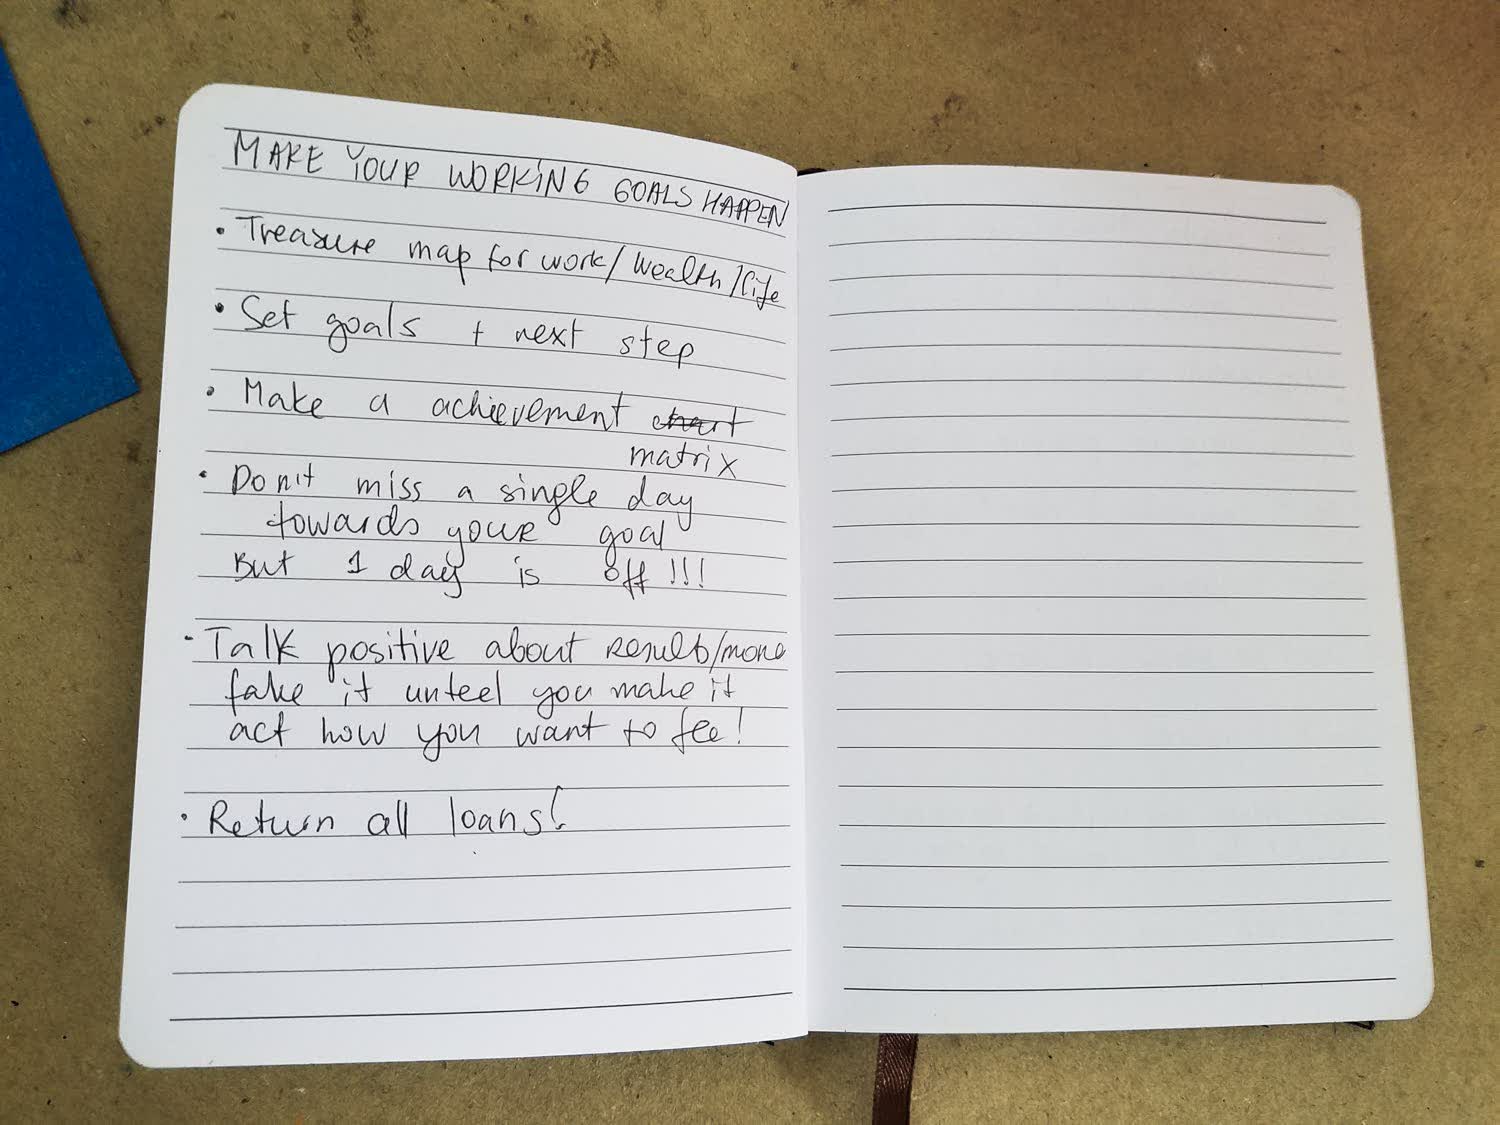 MAKE YOUR WORKING GOALS HAPPEN
• Treasure map for work/wealth/life
• Set goals + next step
• Make a achievement chart
matrix
• Don't miss a single day
towards your goal
But 1 day is off!!!
• Talk positive about result/mone
fake it unteel you make it
act how you want to fee!
• Return all loans!